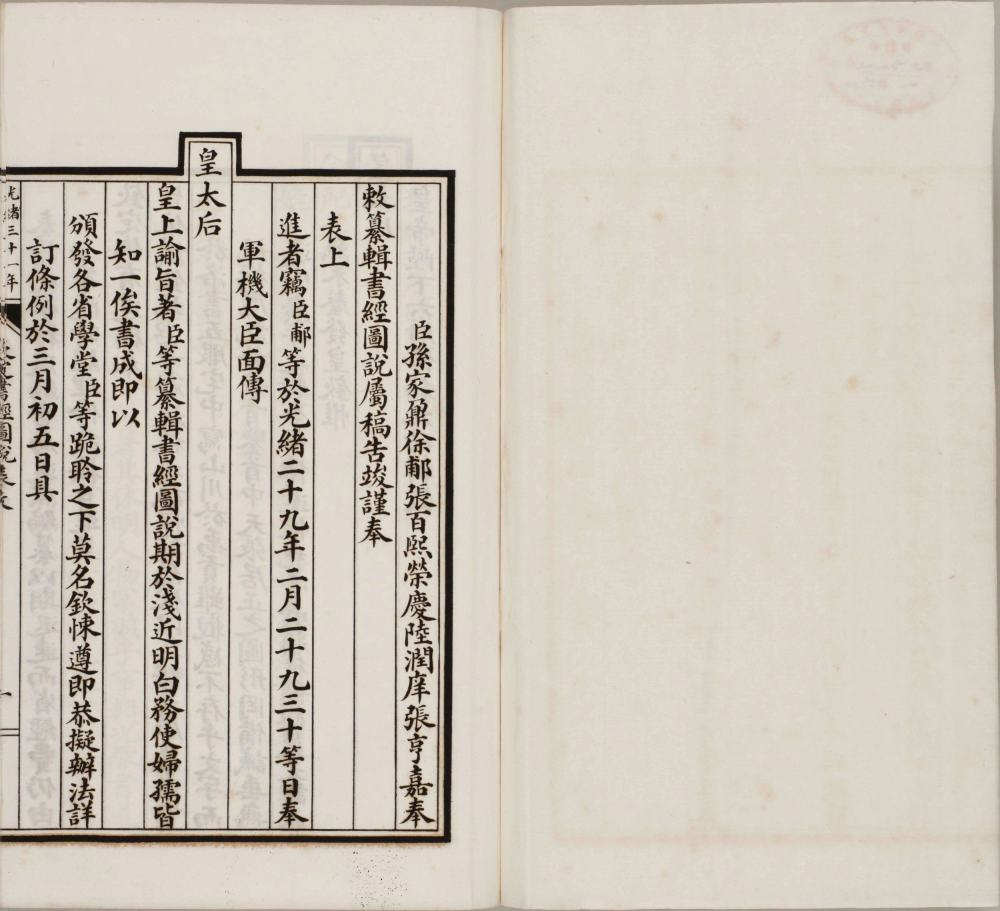 臣孫家鼐徐郙張百熙榮慶陸潤庠張亨嘉奉
敕纂輯書經圖說屬稿告竣謹奉
表上
進者竊臣郙等於光緒二十九年二月二十九三十等日奉
軍機大臣面傳
皇太后
皇上諭旨著臣等纂輯書經圖說期於淺近明白務使婦孺皆
知一俟書成即以
頒發各省學堂臣等跪聆之下莫名欽悚遵即恭擬辦法詳
訂條例於三月初五日具
光緒三十一年
書經圖說表文
一